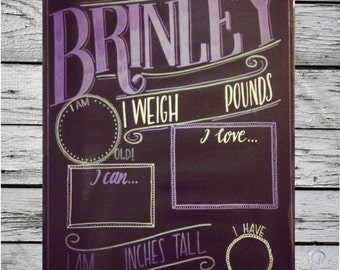 BRINLEY
I AM
I WEIGH POUNDS
OLD!
I love...
I can...
I HAVE
I AM INCHES TALL